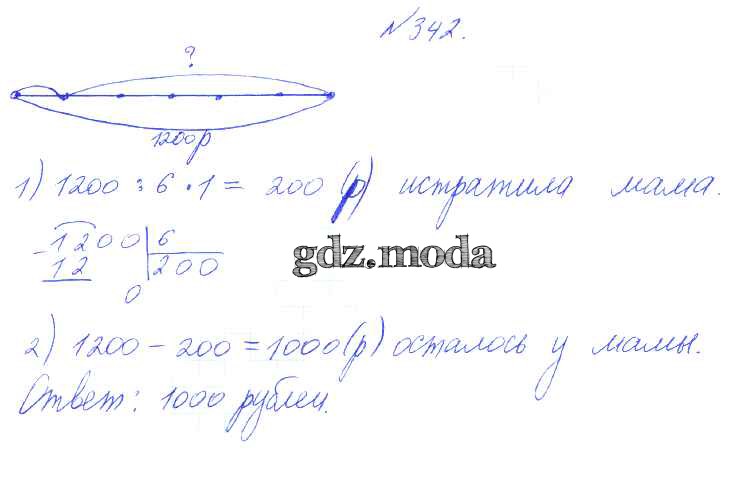 №342.
?
1200р
1) 1200 : 6 · 1 = 200 (р) истратила мама.
- 1200 6
12 200
0
gdz.moda
2) 1200 - 200 = 1000 (р) осталось у мамы.
Ответ: 1000 рублей.